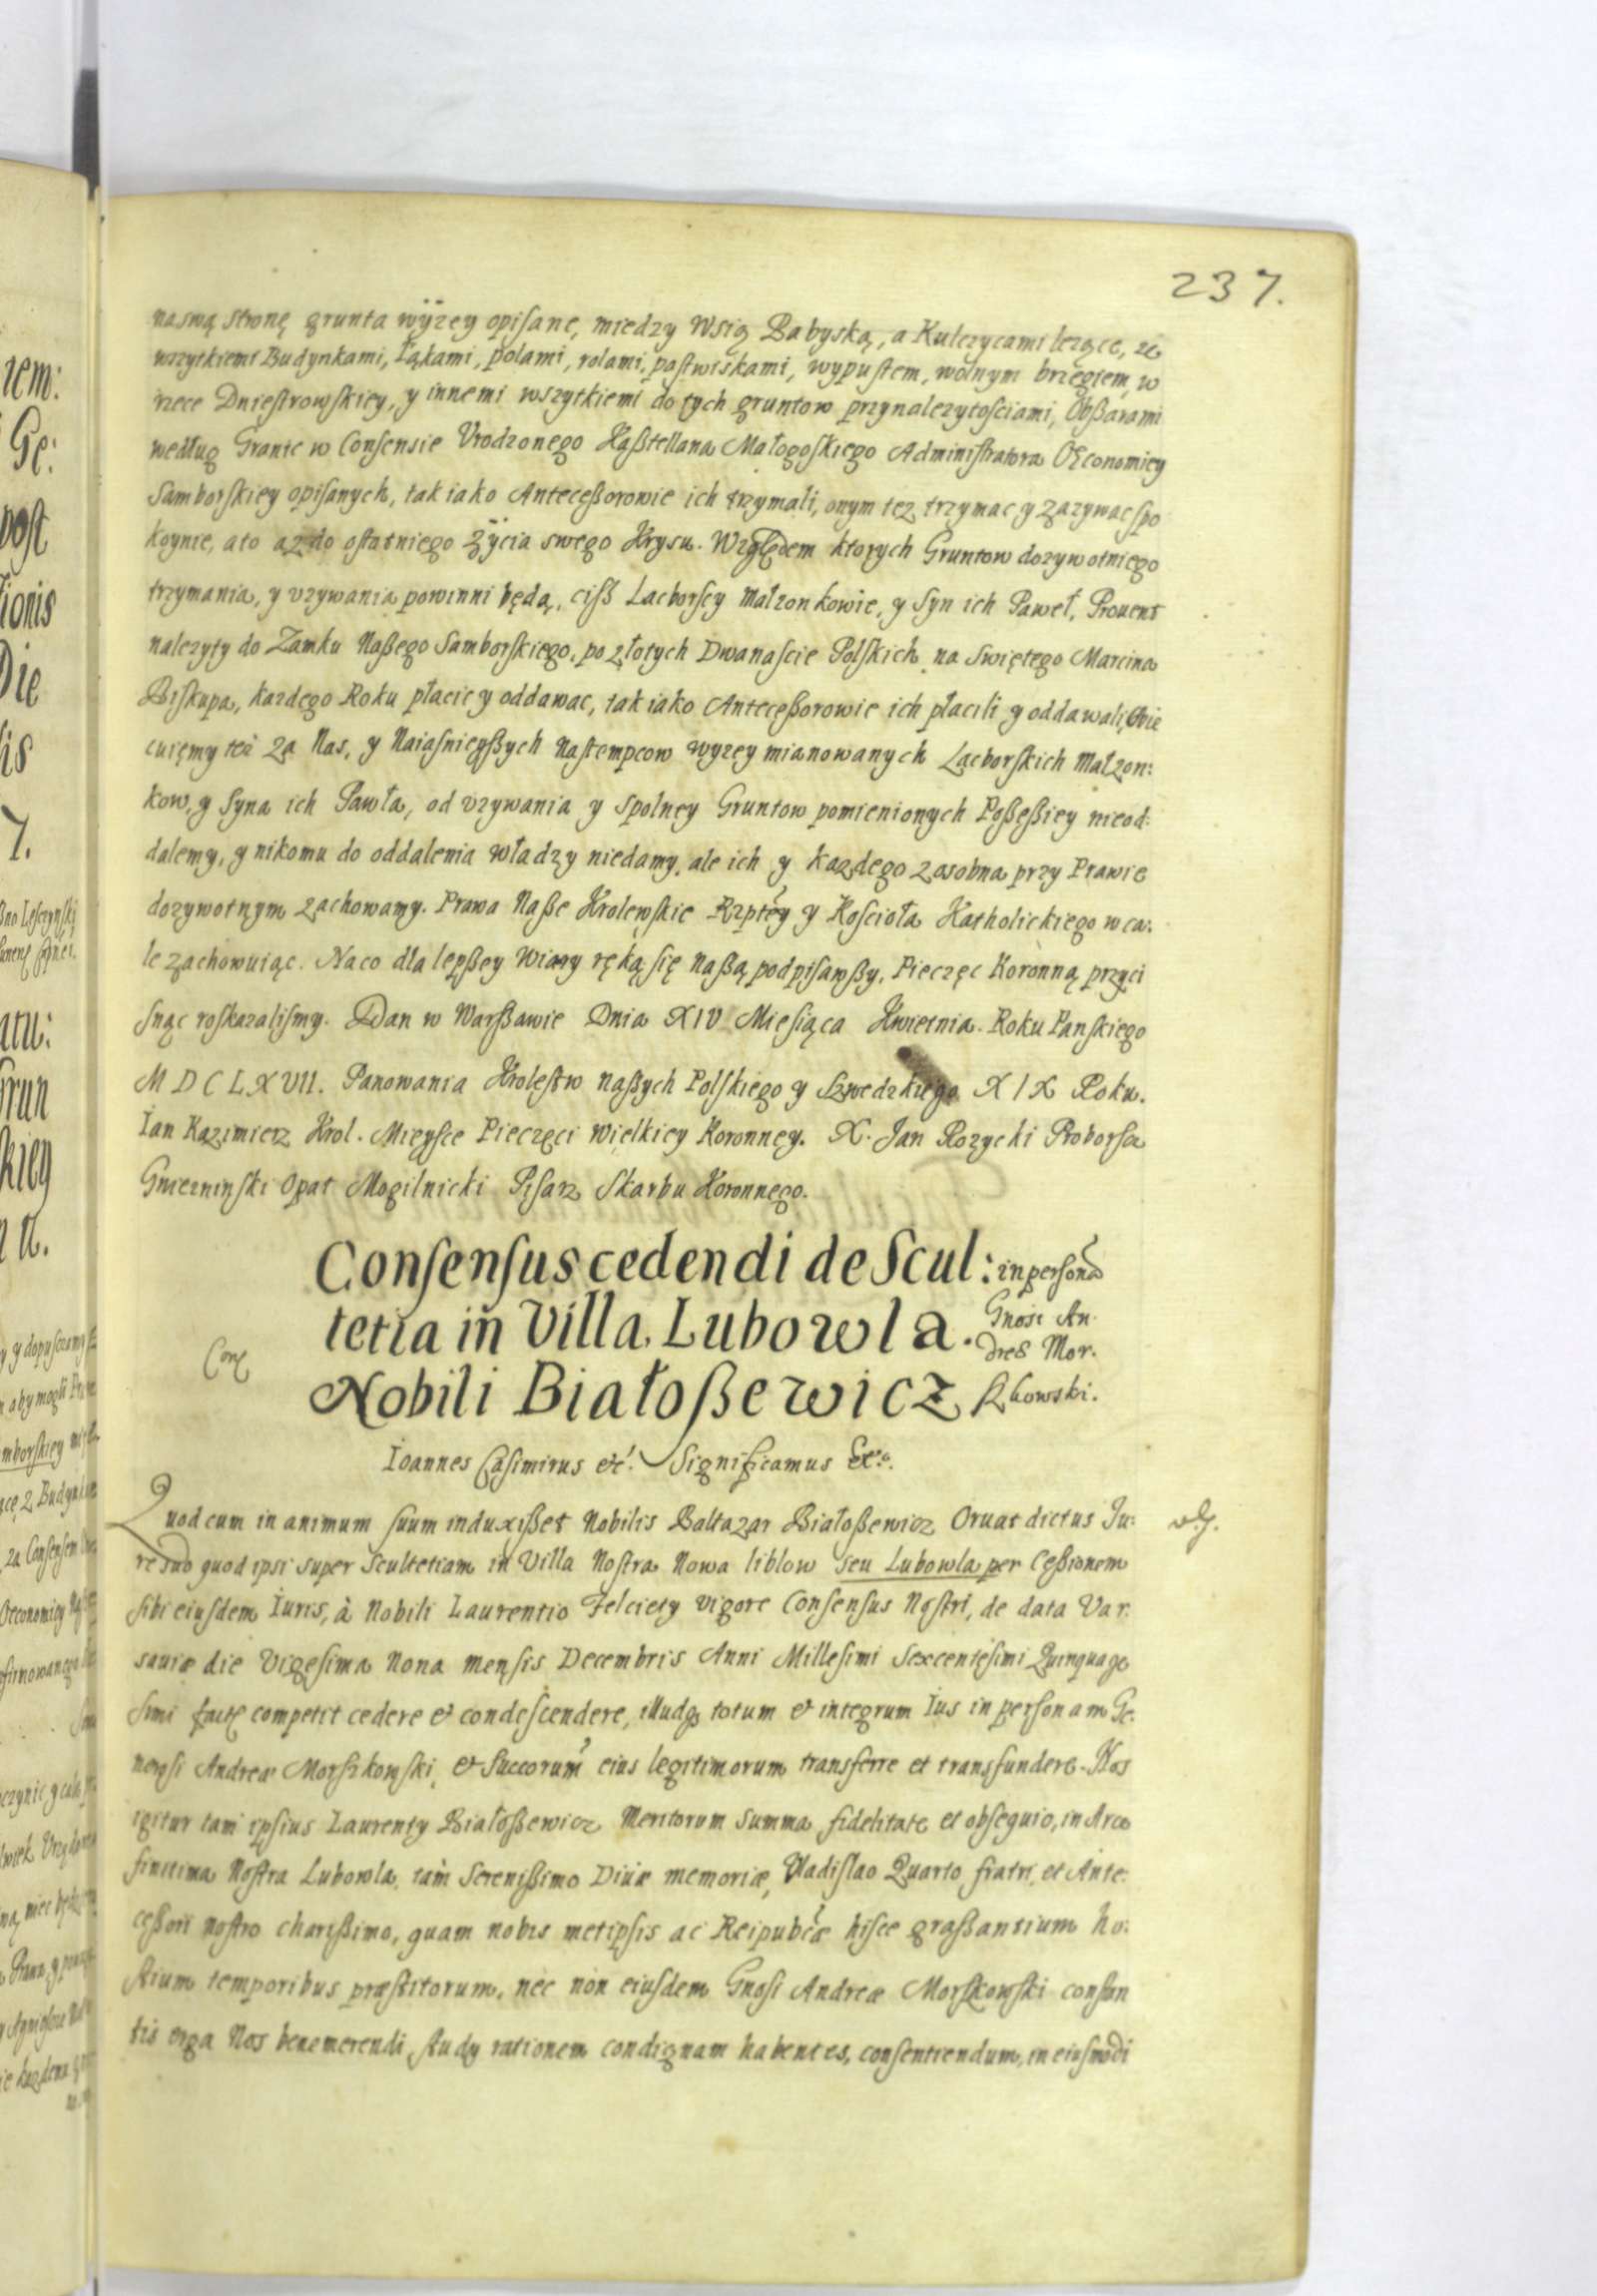 237.
naswą stronę grunta wÿzey opisane, miedzy Wsią Babyską, a Kulczycami lezące, ze
wszytkiemi Budynkami, łąkami, polami, rolami, pastwiskami, wypustem, wolnym brzegiem, w
rzece Dniestrowskiey, y innemi wszytkiemi do tych gruntow przynalezytosciami, Obßarami
według Granic w Consensie Urodzonego Kaßtellana Małogoskiego Administratora OEconomiey
Samborskiey opisanych, tak iako Anteceßorowie ich trzymali, onym tez trzymac y zazywac spo
koynie, a to az do ostatniego zÿcia swego Krysu. Względem ktorych Gruntow dozywotniego
trzymania, y uzywania powinni będą, ciß Lacborscy Małzonkowie, y Syn ich Paweł, Prouent
nalezyty do Zamku Naßego Samborskiego, po złotych Dwanascie Polskich na Swiętego Marcina
Biskupa, kazdego Roku płacic y oddawac, tak iako Anteceßorowie ich płacili y oddawali, Obie
cuięmy tez za Nas, y Naiasnieyßych Nastempcow wyzey mianowanych Lacborskich Małzon:
kow, y Syna ich Pawła, od uzywania y spolney Gruntow pomienionych Poßeßiey nieod:
dalemy, y nikomu do oddalenia władzy niedamy, ale ich y kazdego zosobna przy Prawie
dozywotnym zachowamy. Prawa Naße Krolewskie Rzptey y Koscioła Katholickiego w ca:
le zachowuiąc. Naco dla lepßey Wiary ręką się Naßą podpisawßy, Pieczęc Koronną przyci
snąc roskazalismy. Dan w Warßawie Dnia XIV Miesiąca Kwietnia. Roku Panskiego
MDCLXVII. Panowania Krolestw Naßych Polskiego y Szwedzkiego XIX Roku.
Ian Kazimierz Krol. Mieysce Pieczęci Wielkiey Koronney. X. Jan Rozycki Proborsz
Gnieznienski Opat Mogilnicki Pisarz Skarbu Koronnego.
Consensus cedendi de Scul: in persona
tetia in Villa Lubowla. Gnosi An
Nobili Białoßewicz dreæ Mor.
szkowski.
Ioannes Casimirus etc. Significamus &c.
Quod cum in animum suum induxißet Nobilis Baltazar Białoßewicz Oruat dictus Ju:
re suo quod ipsi super Scultetiam in Villa Nostra Nowa liblow seu Lubowla per Ceßionem
sibi eiusdem Iuris, à Nobili Laurentio Felciety vigore Consensus Nostri, de data Var:
sauiæ die Vigesima Nona mensis Decembris Anni Millesimi Sexcentesimi Quinquage
simi factę competit cedere et condescendere, illudq totum et integrum Ius in personam Ge:
nerosi Andreæ Morszkowski, et Succorum eius legitimorum transferre et transfundere. Nos
igitur tam ipsius Laurenty Białoßewicz Meritorum Summa fidelitate et obsequio, in Arce
finitima Nostra Lubowla, tàm Sereníßimo Diuæ memoriæ, Vladislao Quarto fratri, et Ante:
ceßori nostro charißimo, quam nobis metipsis ac Reipubcæ hisce graßantium ho:
stium temporibus præstitorum, nec non eiusdem Gnosi Andreæ Morszkowski constan
tis erga Nos benemerendi study rationem condignam habentes, consentiendum, in eiusmodi